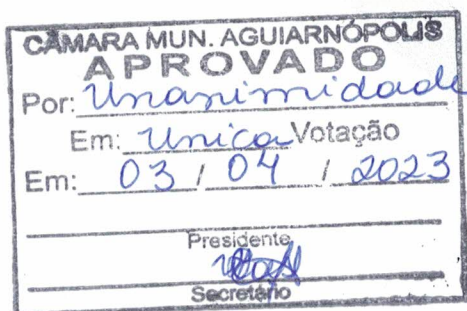 CÂMARA MUN. AGUIARNÓPOLIS
APROVADO
Por: Unanimidade
Em: Unica Votação
Em: 03 / 04 / 2023
Presidente
Secretário